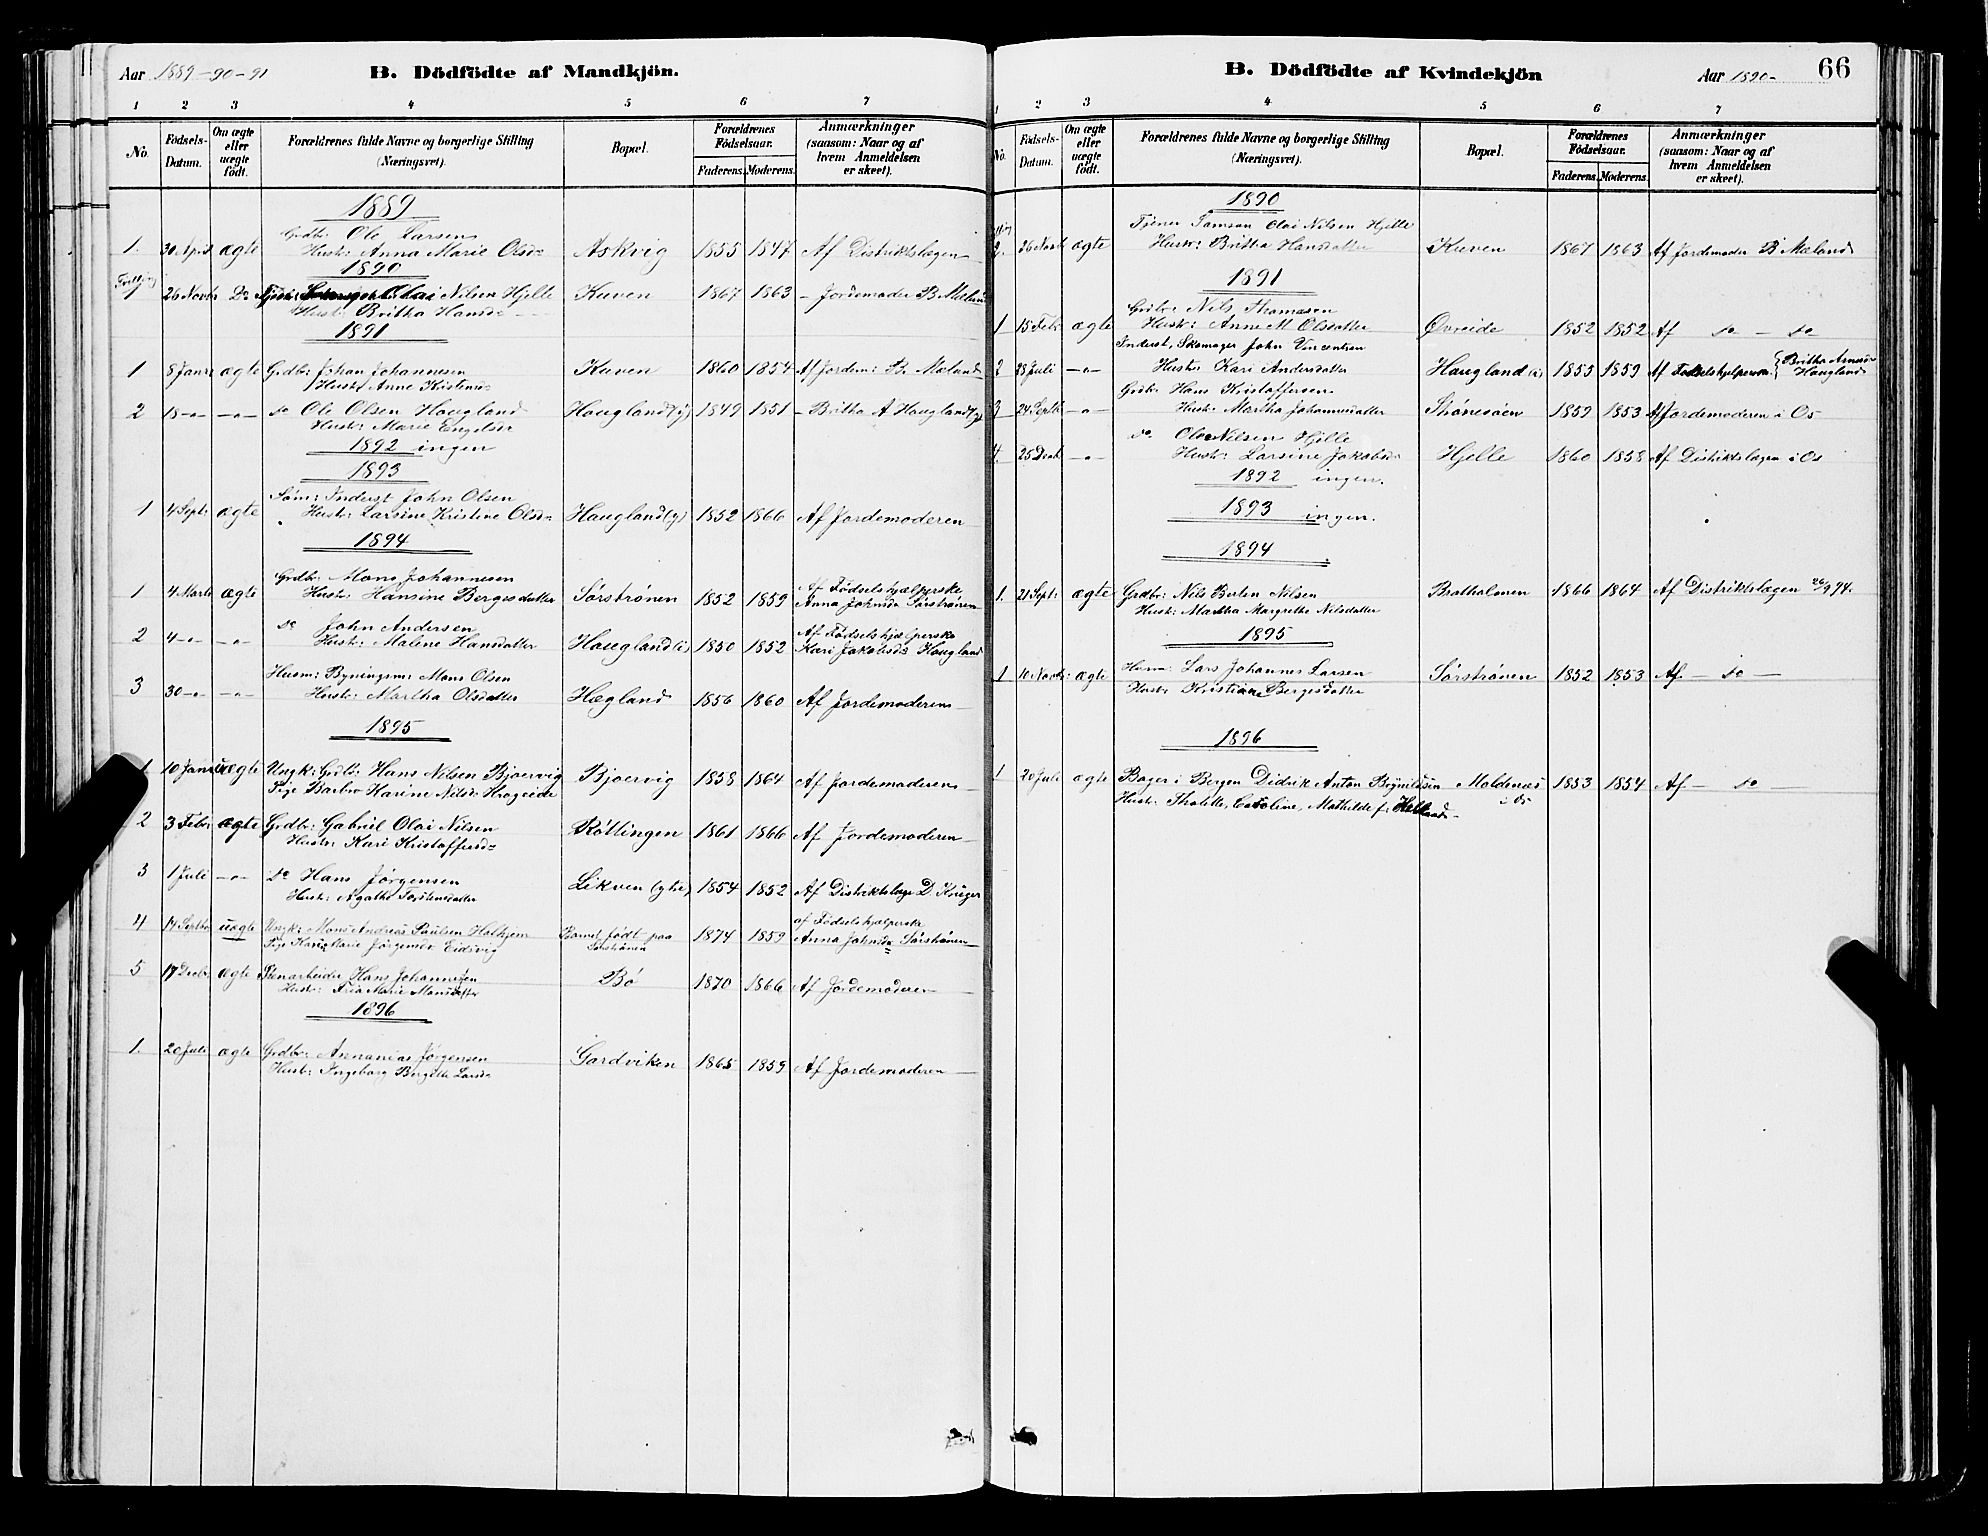 Aar 1889-90-91
B. Dödfödte af Mandkjön.
1 2 3 4 5 6 7
No. Födsels-Datum. Om ægte eller uægte födt. Forældrenes fulde Navne og borgerlige Stilling (Næringsvei). Bopæl. Forældrenes Födselsaar. Faderens. Moderens. Anmærkninger (saasom: Naar og af hvem Anmeldelsen er skeet).
1889
Grdbr. Ole Larsen
1. 30 April ægte Hustr. Anna Marie Olsdr Askvig 1855 1847 Af Distriktslægen
1890
26 Novbr Do Olai Nilsen Hjelle Kuven 1867 1863 - Jordemoder B. Mæland
Hustr. Britha Hansdr
1891
1 8 Janr ægte Grdbr. Johan Johannesen Kuven 1860 1854 Af Jordem: B. Mæland
Hustr Anne Kristensdr
2 18 -"- -"- do Ole Olsen Haugland Haugland (y) 1849 1851 - Britha A. Haugland (y)
Hustr: Marie Engelsdr
1892 ingen
1893
Søm: Inderst John Olsen
1 4 Septr ægte Hustr. Larsine Kristine Olsdr Haugland (y) 1852 1866 Af Jordemoderen
1894
Grdbr. Mons Johannesen
1 4 Marts ægte Hustr: Hansine Bergesdatter Sørstrønen 1852 1859 Af Fødselshjælperske Anna Johnsdr Sørstrønen
do John Andersen
2 4 -"- -"- Hustr: Malene Hansdatter Haugland (i) 1850 1852 Af Fødselshjælperske Kari Jakobsdr Haugland
Husm: Bygningsm: Mons Olsen
3 30 -"- -"- Hustr: Martha Olsdatter Hægland 1856 1860 Af Jordemoderen
1895
1 10 Janr uægte Ungk: Grdbr: Hans Nilsen Bjørvig Bjørvig 1858 1864 Af Jordemoderen
Pige Barbro Karine Nilsdr
2 3 Febr ægte Grdbr: Gabriel Olai Nilsen Røttingen 1861 1866 Af Jordemoderen
Hustr: Kari Kristoffersdr
3 1 Juli -"- do Hans Jørgensen Likven (ytre) 1854 1852 Af Distriktslæge D. Krüger
Hustr: Agathe Torstensdatter
4 14 Septbr uægte Ungk: Mons Andreas Paulsen Halhjem Barnet født paa Sørstrønen 1874 1859 af Fødselshjælperske Anna Johnsdr Sørstrønen
Pige Karie Marie Jørgensdr Eidsvig
5 17 Decbr ægte Stenarbeider Hans Johannesen Bø 1870 1866 Af Jordemoderen
Hustr: Marie Monsdatter
1896
1. 20 Juli ægte Grdbr: Annanias Jørgensen Gardviken 1865 1859 Af Jordemoderen
Hustr: Ingeborg Bergitte Larsdr
B. Dödfödte af Kvindekjön
Aar 1890-
66
1 2 3 4 5 6 7
No. Födsels-Datum. Om ægte eller uægte födt. Forældrenes fulde Navne og borgerlige Stilling (Næringsvei). Bopæl. Forældrenes Födselsaar. Faderens. Moderens. Anmærkninger (saasom: Naar og af hvem Anmeldelsen er skeet).
1890
Tjener Olai Nilsen Hjelle
2. 26 Novbr ægte Hustr: Britha Hansdatter Kuven 1867 1863 Af Jordemoder B. Mæland
1891
Grdbr: Nils Thomasen
1 15 Febr ægte Hustr: Anne M. Olsdatter Øvreide 1852 1852 Af do - do
Inderst, Skomager John Vincentsen
2 28 Juli -"- Hustr Kari Andersdatter Haugland (i) 1855 1859 Af Fødselshjælpersk. Britha Arnesdr Haugland
Grdbr Hans Kristoffersen
3 24 Septbr -"- Hustr. Martha Johannesdatter Strønesøen 1859 1853 Af Jordemoderen i Os
do. Ole Nilsen Hjelle
4. 25 Decbr -"- Hustr: Larsine Jakobsdr Hjelle 1860 1858 Af Distriktslægen i Os
1892 ingen.
1893 ingen.
1894
1. 21 Septr: ægte Grdbr: Nils Berten Nilsen Bratholmen 1866 1864 Af Distriktslægen 26/9 94.
Hustr: Martha Margrethe Nilsdatter
1895
1 10 Novbr: ægte Husm: Lars Johannes Larsen Sørstrønen 1852 1853 Af - do -
Hustr: Kristiane Bergesdatter
1896
1 20 Juli ægte Bager i Bergen Didrik Anton Moldenæs i Os 1853 1854 Af - do -
Hustr: Caroline Mathilde f: